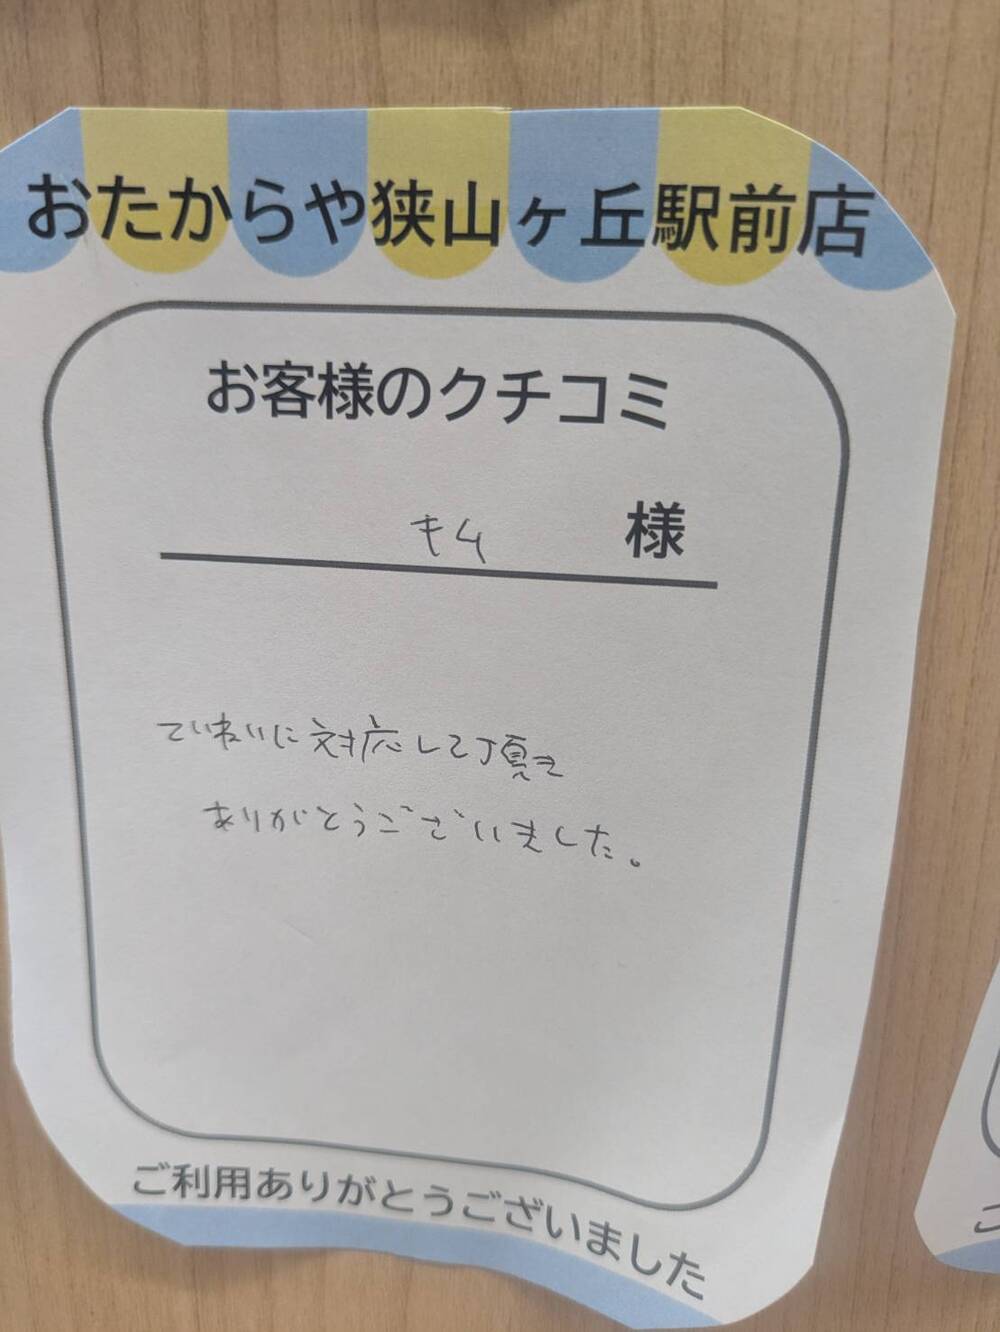 おたからや狭山ヶ丘駅前店
お客様のクチコミ
キム 様
ていねいに対応して頂き
ありがとうございました。
ご利用ありがとうございました